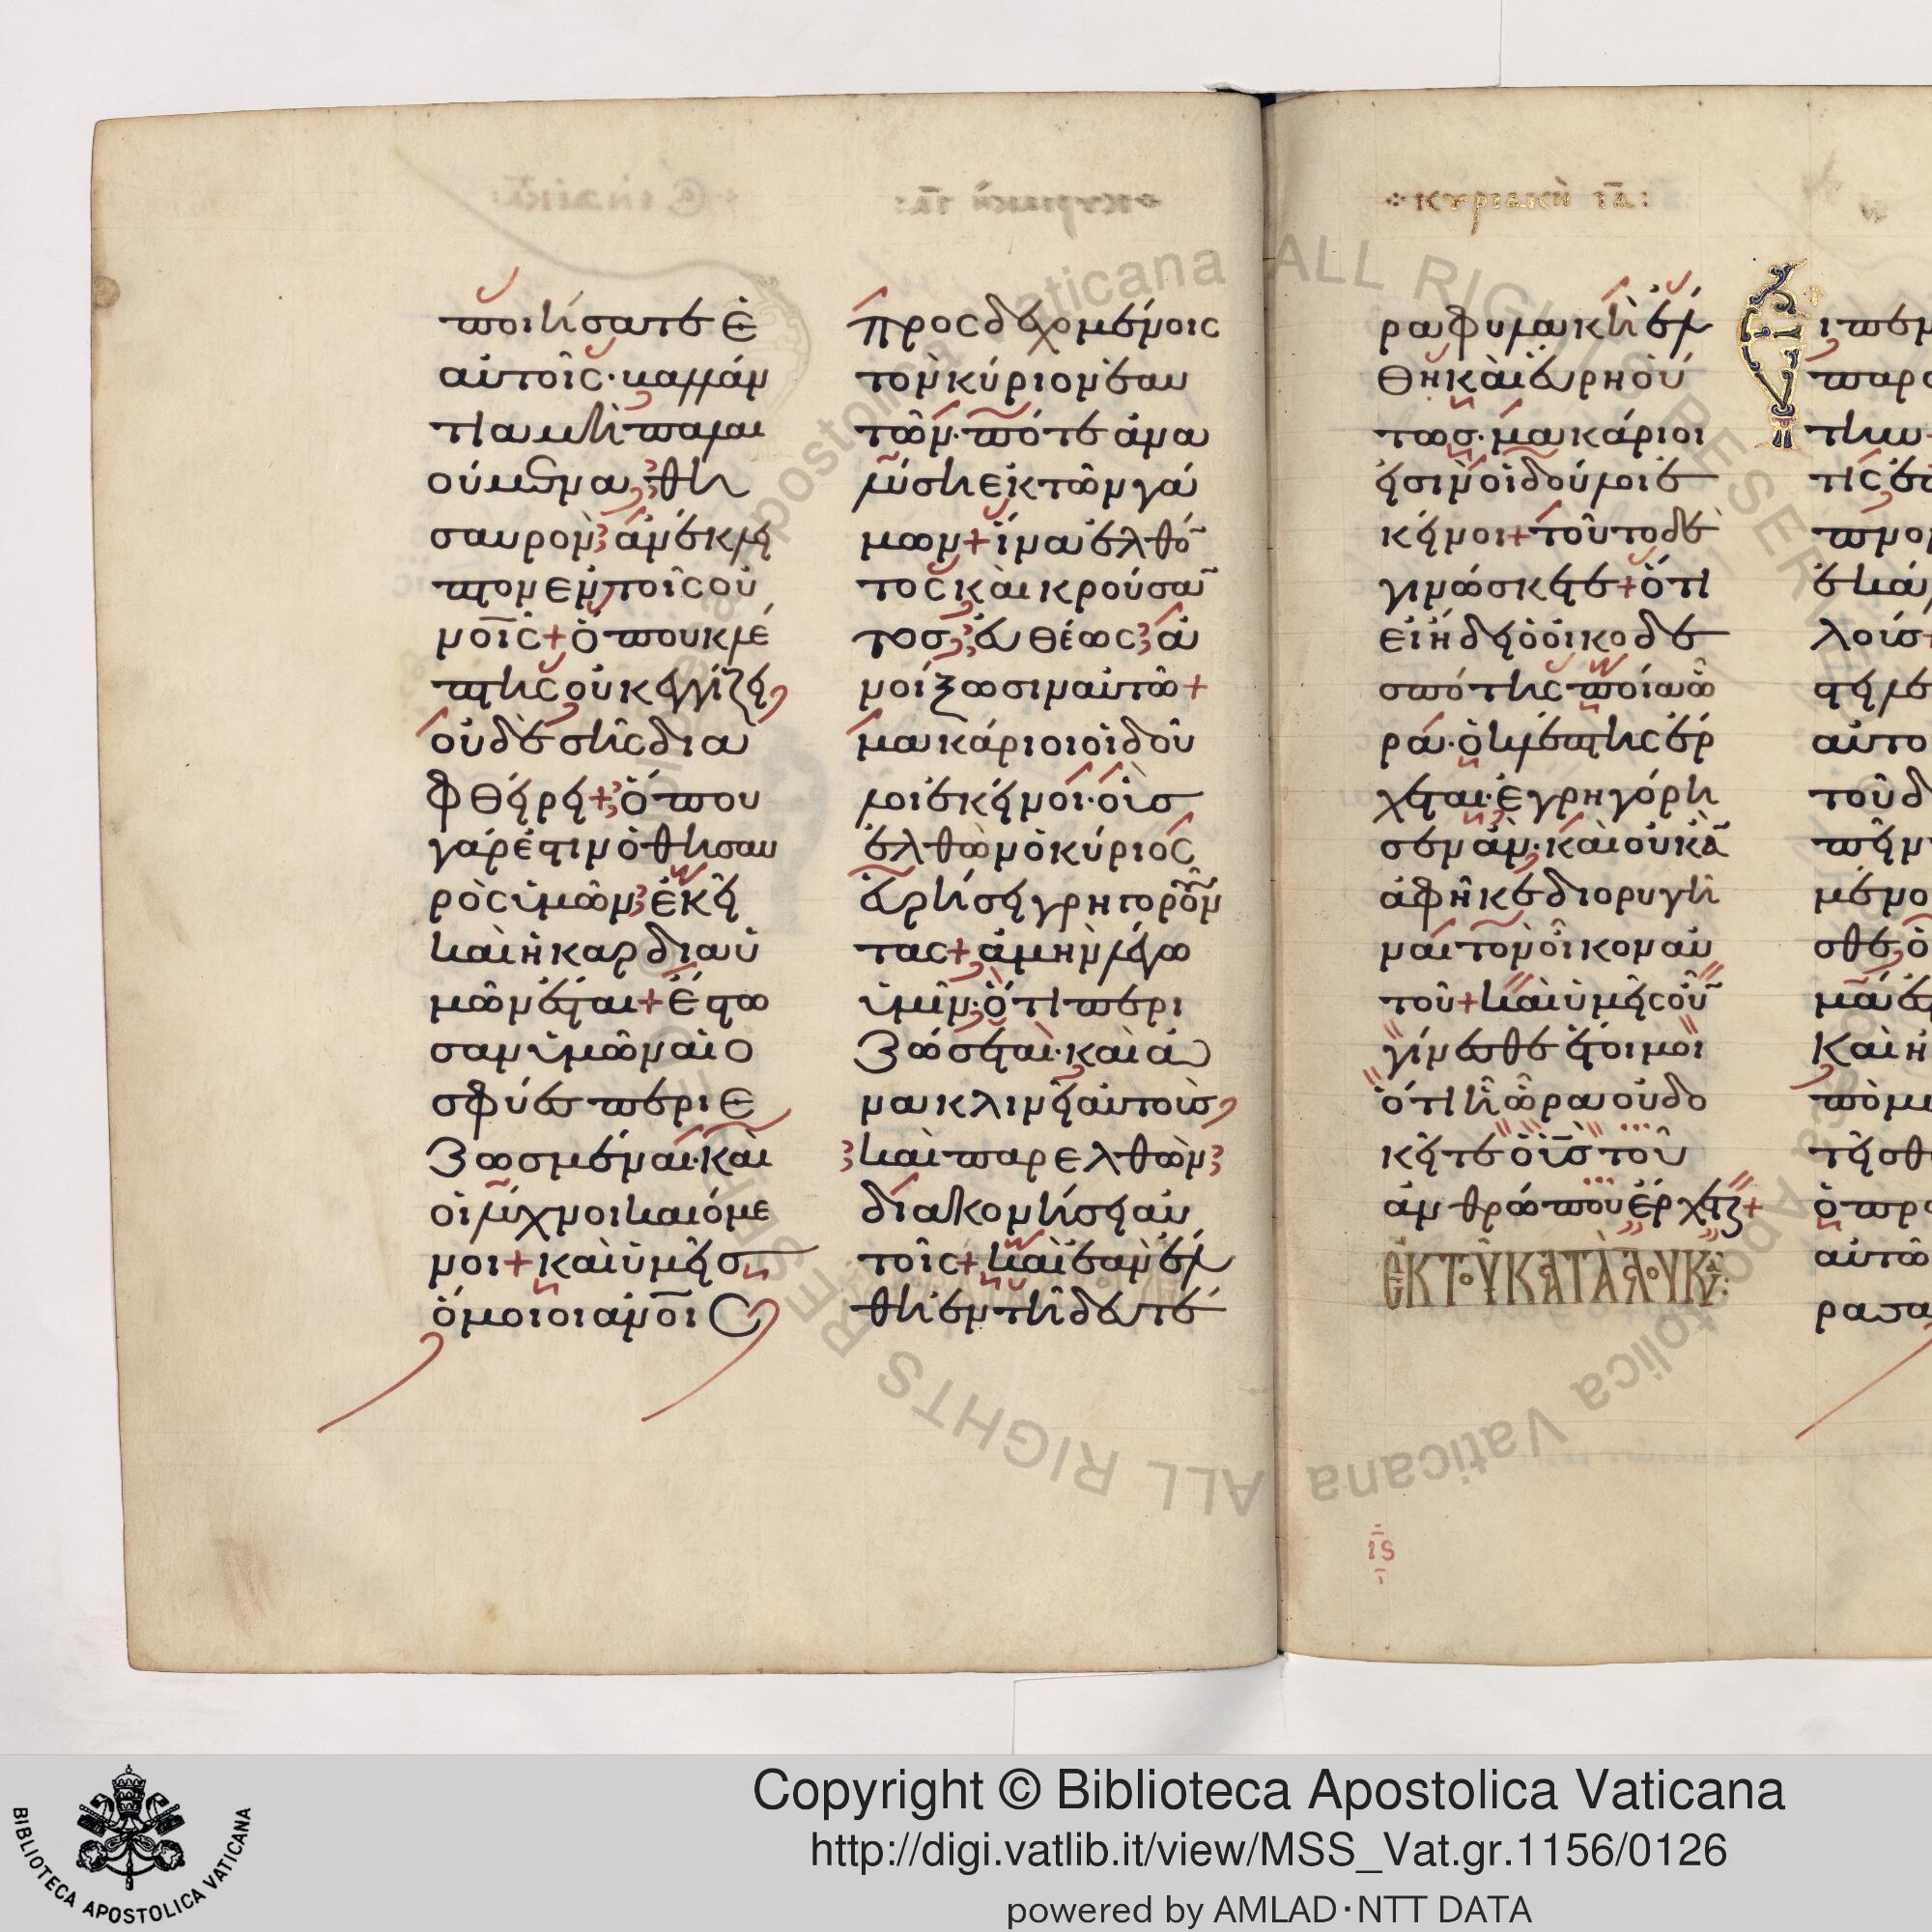 ποιήσατε ἑ
αὐτοῖς· βαλλάν
τια μὴ παλαι
ούμενα· θη
σαυρὸν ἀνέκλει
πτον ἐν τοῖς οὐ
νοῖς + ὅπου κλέ
πτης οὐκ ἐγγίζει
οὐδὲ σὴς δια
φθείρει + ὅπου
γάρ ἐστιν ὁ θησαυ
ρὸς ὑμῶν ἐκεῖ
καὶ ἡ καρδία ὑ
μῶν ἔσται + Ἔστω
σαν ὑμῶν αἱ ὀ
σφύες περιε
ζωσμέναι· καὶ
οἱ λύχνοι καιόμε
νοι + καὶ ὑμεῖς
ὅμοιοι ἀνοῖς
προσδεχομένοις
τὸν κύριον ἑαυ
τῶν· πότε ἀνα
λύσῃ ἐκ τῶν γά
μων + ἵνα ἐλθό
τος καὶ κρούσα
τος· εὐθέως ἀ
νοίξωσιν αὐτῶ +
μακάριοι οἱ δοῦ
λοι ἐκεῖνοι· οὓς
ἐλθὼν ὁ κύριος
εὑρήσει γρηγοροῦν
τας + ἀμὴν λέγω
ὑμῖν· ὅτι περι
ζώσεται· καὶ ἀ
νακλινεῖ αὐτοὺς
καὶ παρελθὼν
διακονήσει αὐ
τοῖς + καὶ ἐὰν ἔλ
θη ἐν τῆ δευτέ
+ ΚΥΡΙΑΚΗ ΙΑ:
ρα φυλακῆ ἔλ
θη καὶ εὕρη οὕ
τως· μακάριοί
εἰσιν οἱ δοῦλοι ἐ
κεῖνοι + τοῦτο δὲ
γινώσκετε + ὅτι
εἰ ἤδει ὁ οἰκοδε
σπότης ποία ὥ
ρα· ὁ κλέπτης ἔρ
χεται· ἐγρηγόρη
σεν ἄν· καὶ οὐκ ἂ
ἀφῆκε διορυγῆ
ναι τὸν οἶκον αὐ
τοῦ + καὶ ὑμεῖς οὖ
γίνεσθε ἕτοιμοι
ὅτι ἧ ὥρα οὐ δο
κεῖτε ὁ υἱὸς τοῦ
ἀνθρώπου ἔρχεται +
ἘΚ ΤΟΥ ΚΑΤΑ ΛΟΥΚΑΝ:
Εἶπεν
παρα
την
τις ἐπ
λοις
αὐτο
τοῦ δ
μένο
σθε ὁ
Καὶ ἡ
ὁ πρ
αὐτῶ
ις
Copyright © Biblioteca Apostolica Vaticana
http://digi.vatlib.it/view/MSS_Vat.gr.1156/0126
powered by AMLAD·NTT DATA
BIBLIOTECA APOSTOLICA VATICANA